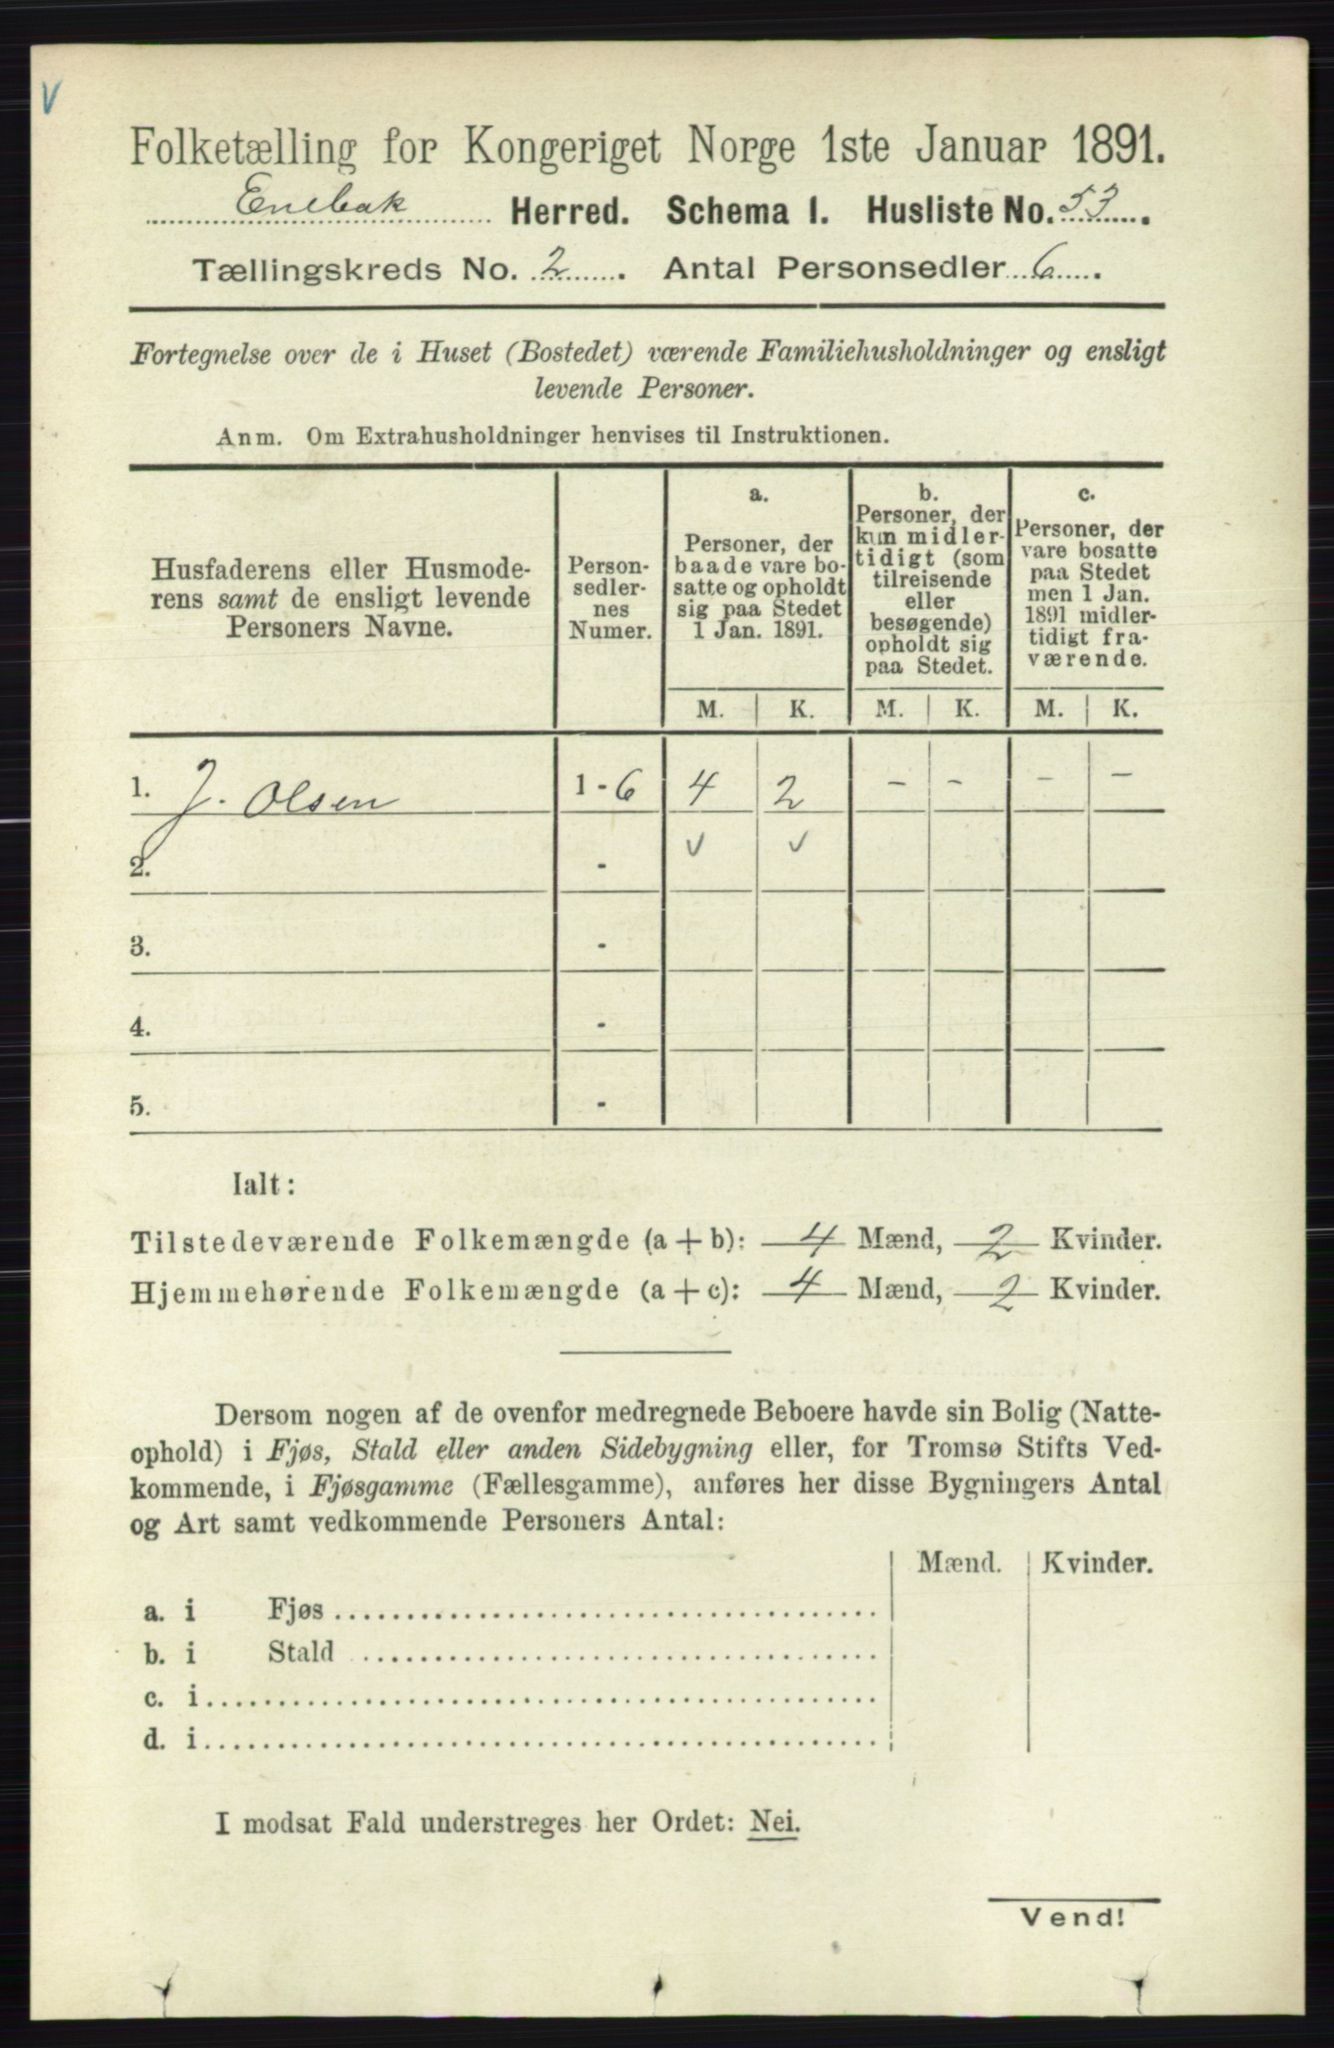 V
Folketælling for Kongeriget Norge 1ste Januar 1891.
Enebak Herred. Schema 1. Husliste No. 53.
Tællingskreds No. 2. Antal Personsedler 6.
Fortegnelse over de i Huset (Bostedet) værende Familiehusholdninger og ensligt
levende Personer.
Anm. Om Extrahusholdninger henvises til Instruktionen.
Husfaderens eller Husmode-
rens samt de ensligt levende
Personers Navne.
Person-
sedler-
nes
Numer.
a.
Personer, der
baade vare bo-
satte og opholdt
sig paa Stedet
1 Jan. 1891.
b.
Personer, der
kun midler-
tidigt (som
tilreisende
eller
besøgende)
opholdt sig
paa Stedet.
c.
Personer, der
vare bosatte
paa Stedet
men 1 Jan.
1891 midler-
tidigt fra-
værende.
M. K. M. K. M. K.
1. J. Olsen 1 - 6 4 2 - - - -
2. - v v
3. -
4. -
5. -
Ialt:
Tilstedeværende Folkemængde (a + b): 4 Mænd, 2 Kvinder.
Hjemmehørende Folkemængde (a + c): 4 Mænd, 2 Kvinder.
Dersom nogen af de ovenfor medregnede Beboere havde sin Bolig (Natte-
ophold) i Fjøs, Stald eller anden Sidebygning eller, for Tromsø Stifts Ved-
kommende, i Fjøsgamme (Fællesgamme), anføres her disse Bygningers Antal
og Art samt vedkommende Personers Antal:
Mænd. Kvinder.
a. i Fjøs
b. i Stald
c. i
d. i
I modsat Fald understreges her Ordet: Nei.
Vend!